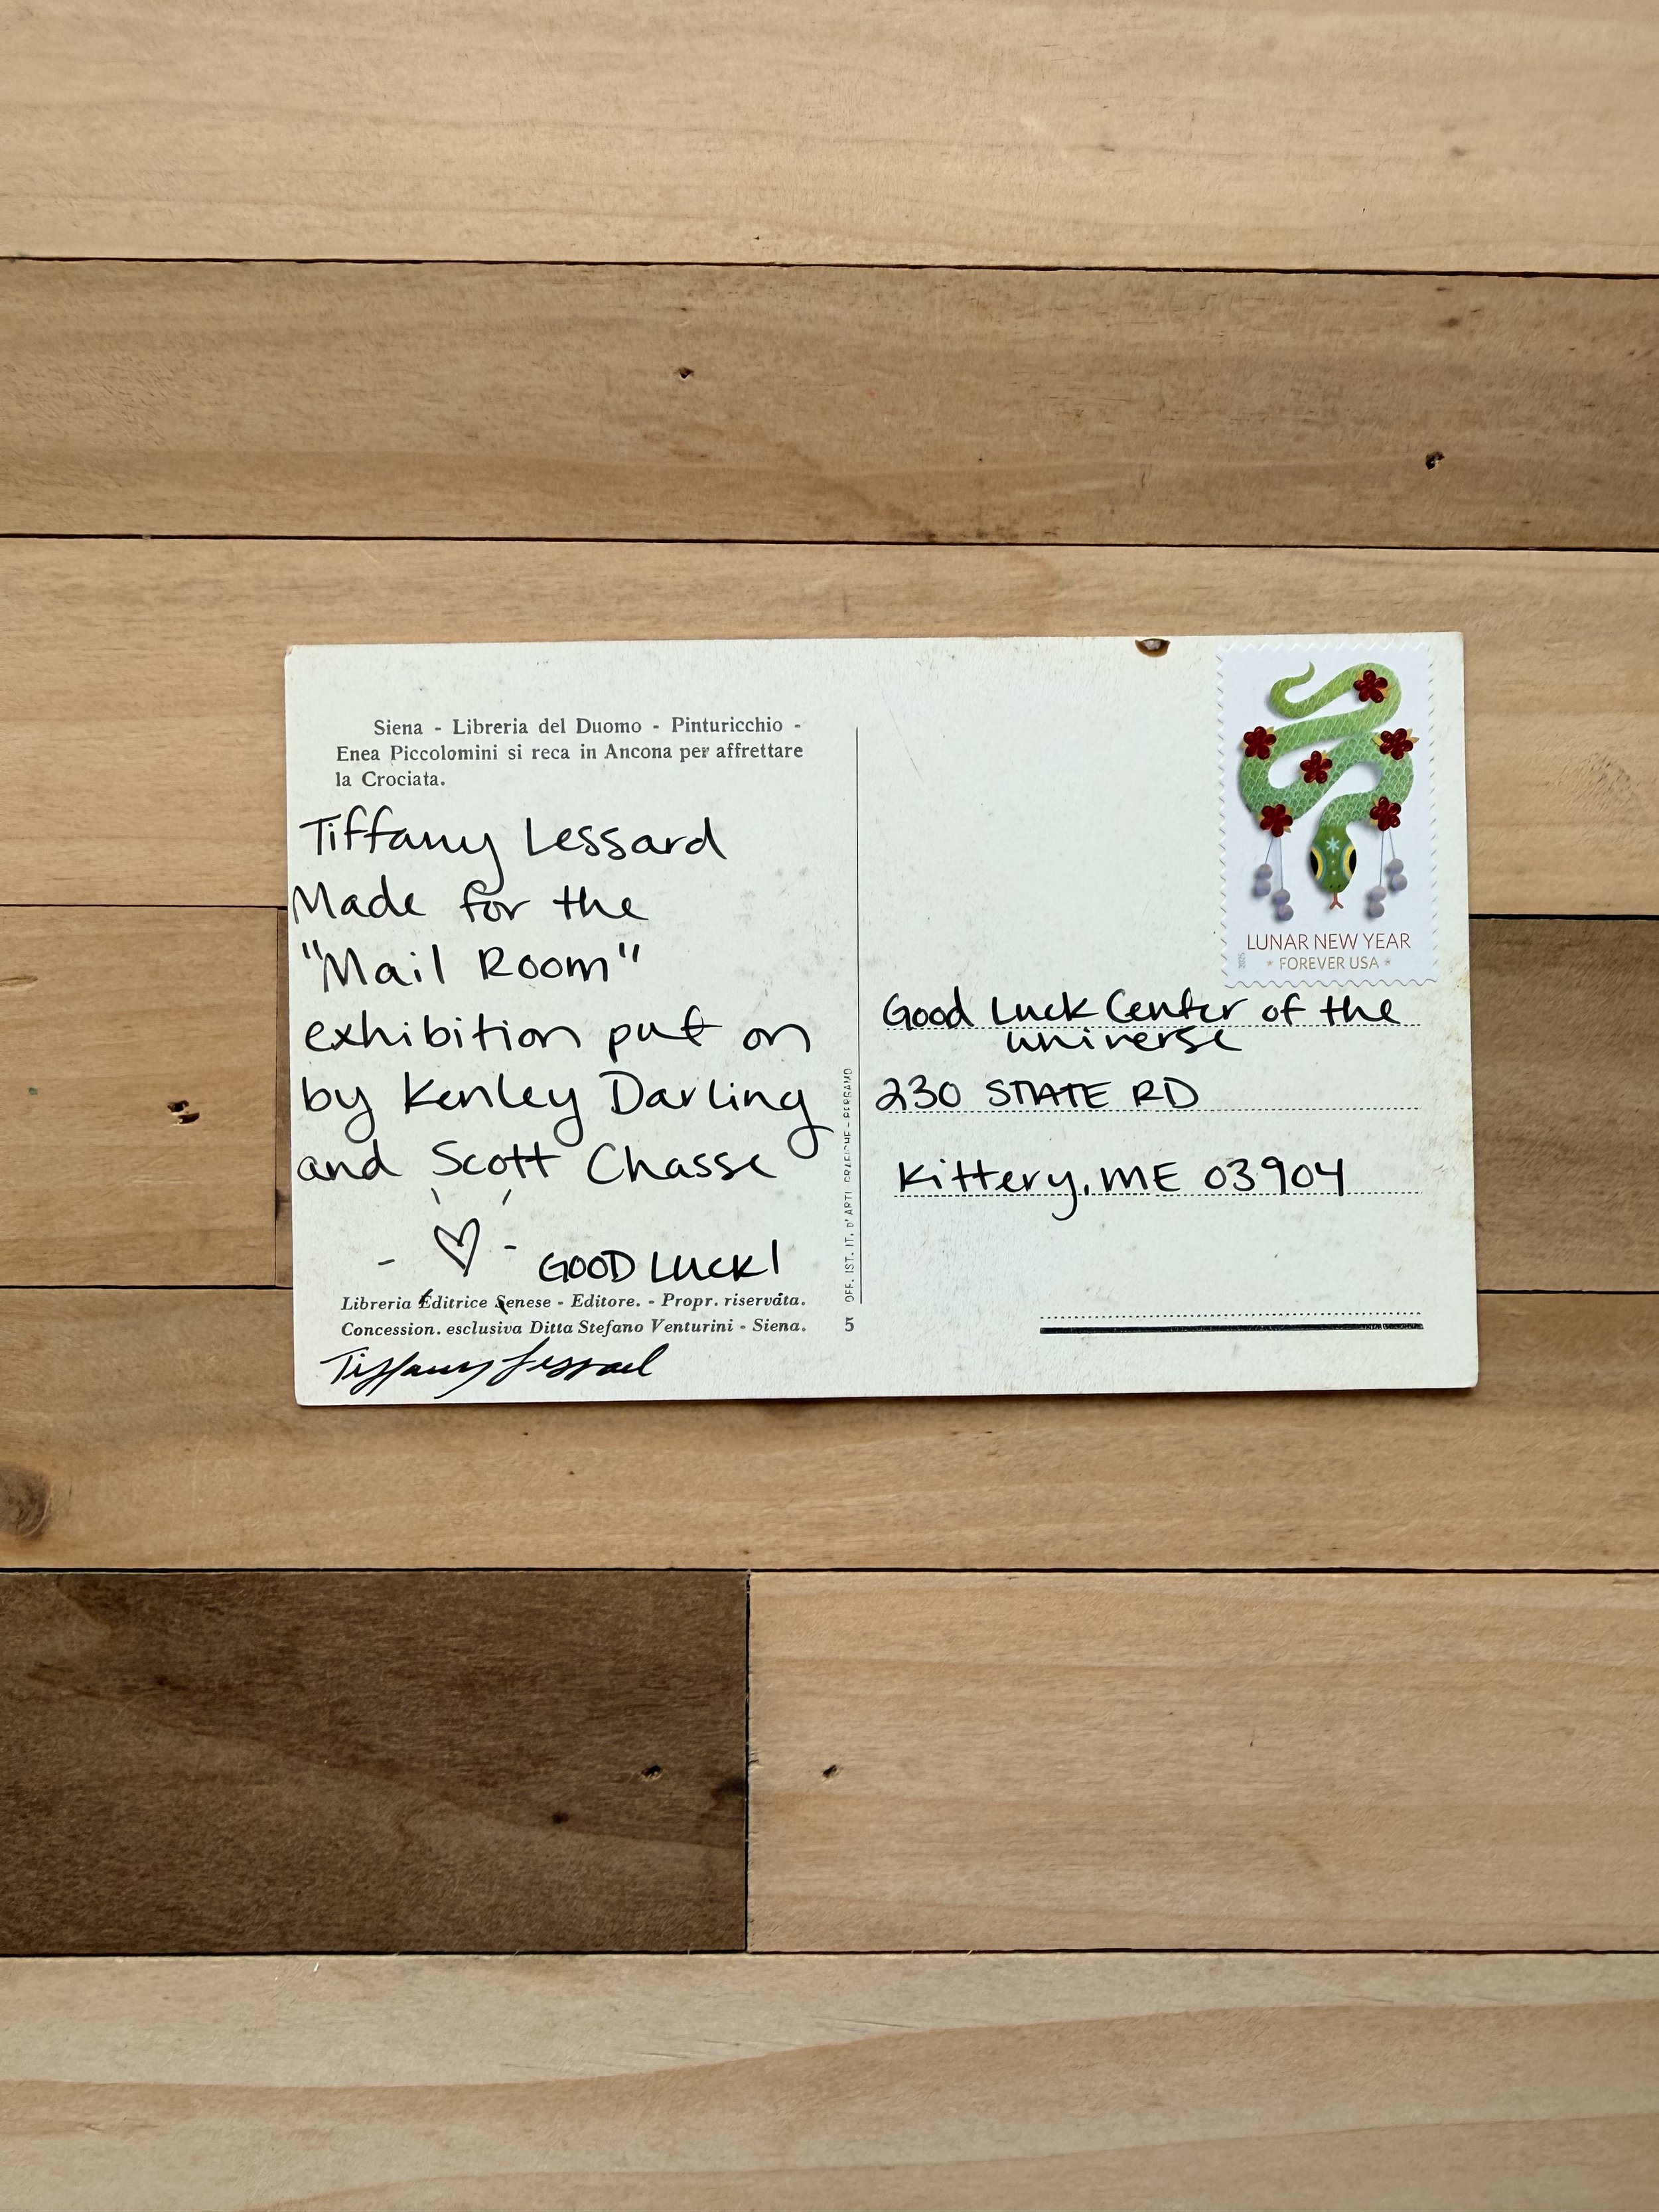 Siena - Libreria del Duomo - Pinturicchio -
Enea Piccolomini si reca in Ancona per affrettare
la Crociata.
Tiffany Lessard
Made for the
"Mail Room"
exhibition put on
by Kenley Darling
and Scott Chasse
GOOD LUCK!
Libreria Editrice Senese - Editore. - Propr. riservata.
Concession. esclusiva Ditta Stefano Venturini - Siena.
5
Tiffany Lessard
OFF. IST. IT. D'ARTI GRAFICHE - BERGAMO
2025
LUNAR NEW YEAR
* FOREVER USA *
Good Luck Center of the
universe
230 STATE RD
Kittery, ME 03904